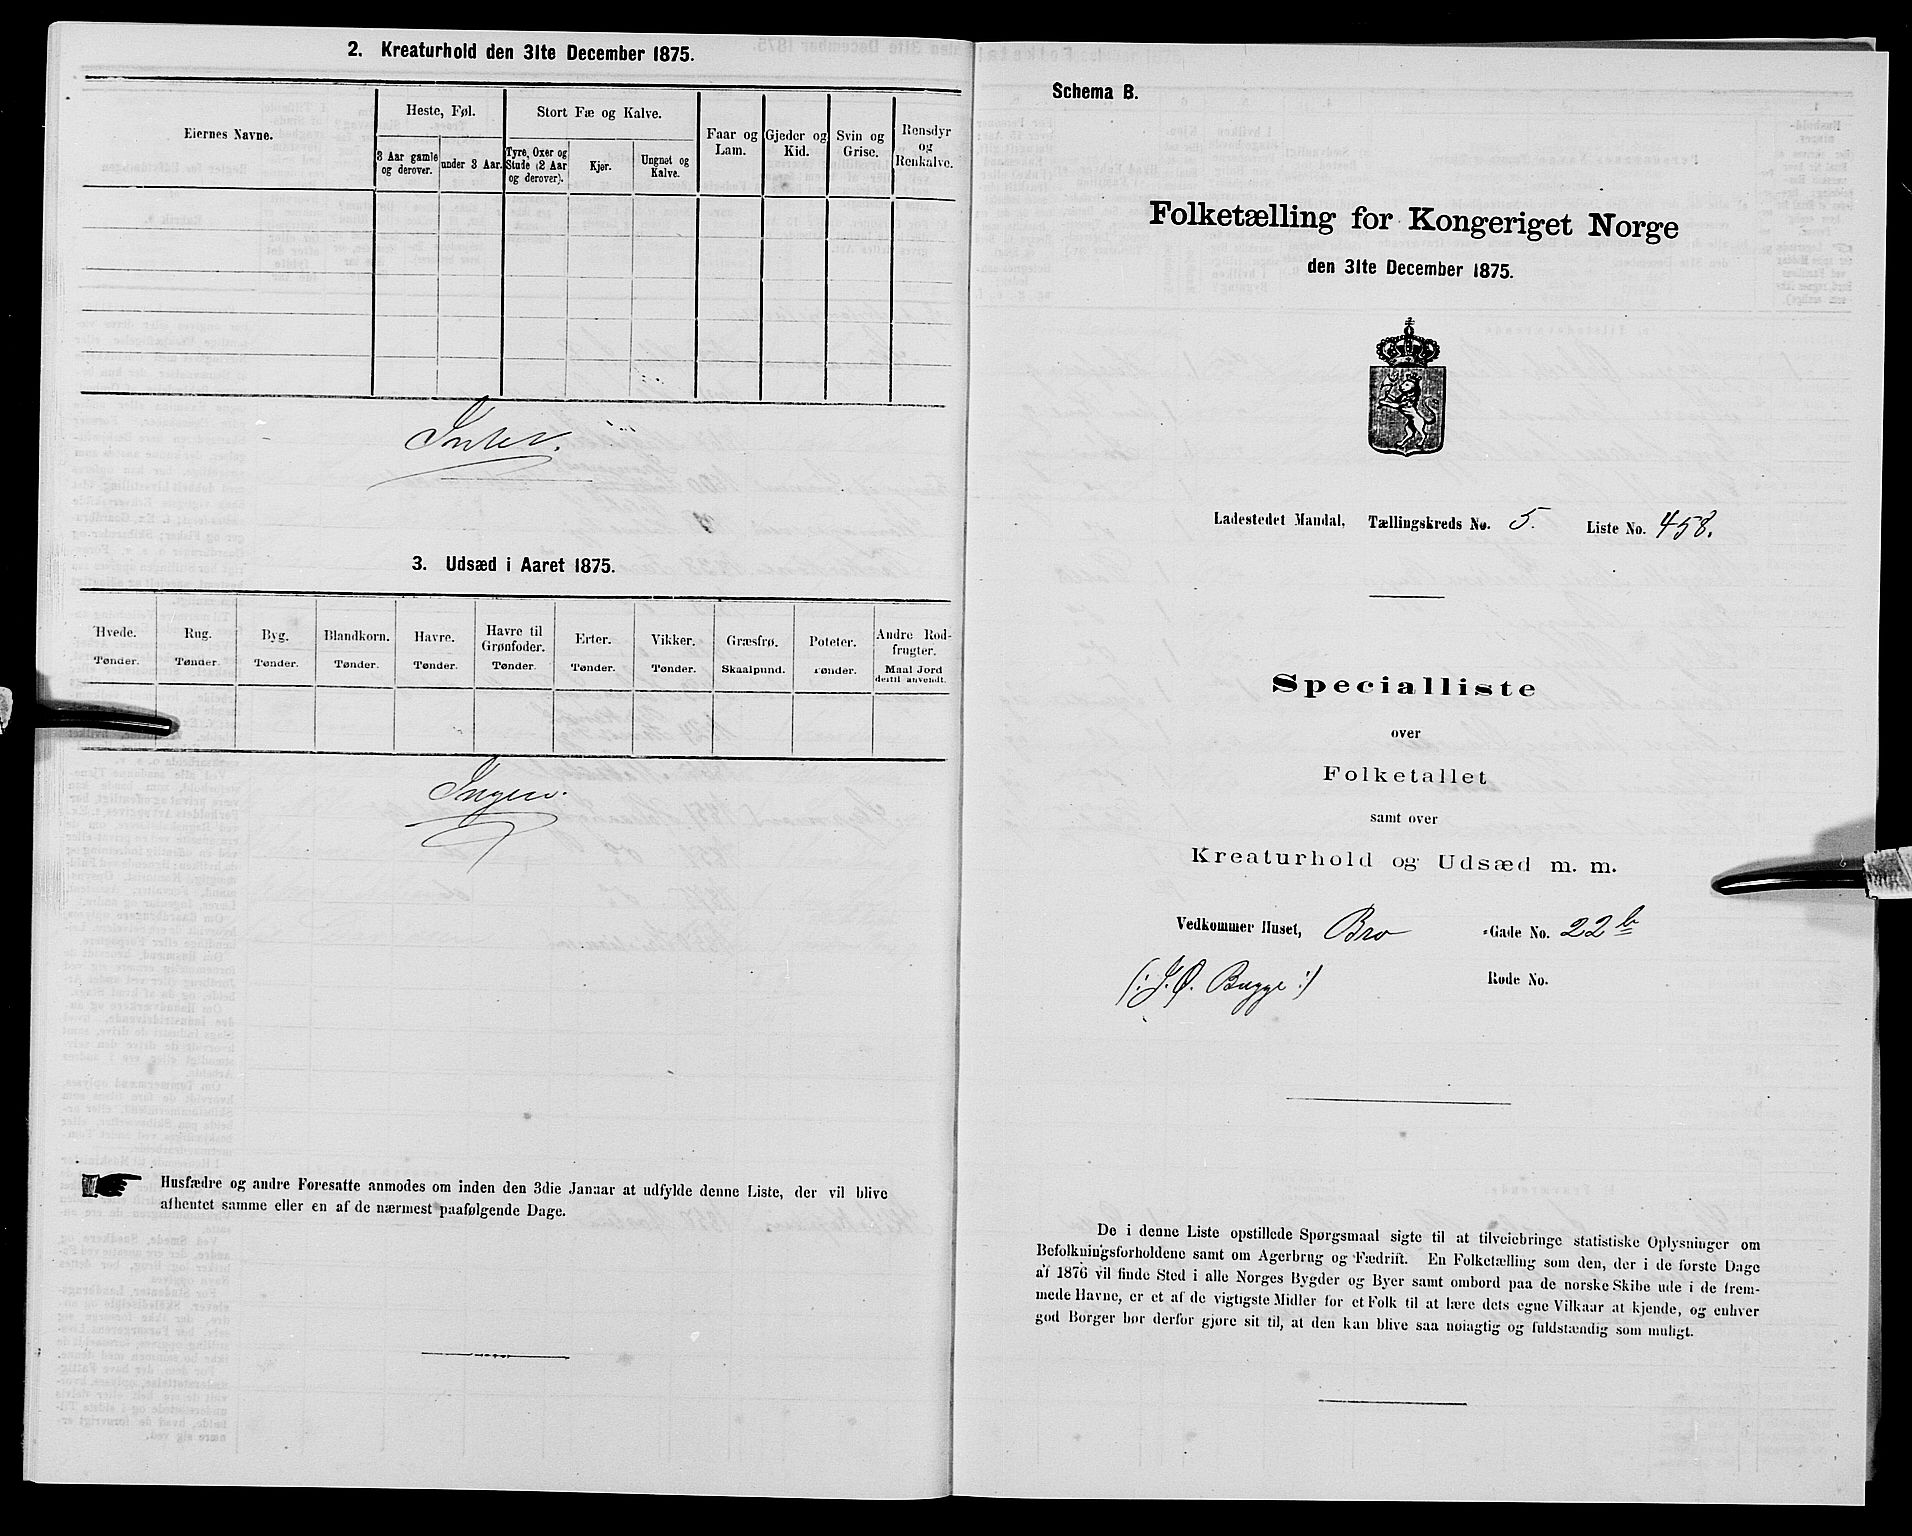 2. Kreaturhold den 31te December 1875.
Eiernes Navne.
Heste, Føl.
Stort Fæ og Kalve.
Faar og Lam.
Gjeder og Kid.
Svin og Grise.
Rensdyr og Renkalve.
3 Aar gamle og derover.
under 3 Aar.
Tyre, Oxer og Stude (2 Aar og derover).
Kjør.
Ungnøt og Kalve.
Intet.
3. Udsæd i Aaret 1875.
Hvede.
Rug.
Byg.
Blandkorn.
Havre.
Havre til Grønfoder.
Erter.
Vikker.
Græsfrø.
Poteter.
Andre Rodfrugter.
Tønder.
Tønder.
Tønder.
Tønder.
Tønder.
Tønder.
Tønder.
Tønder.
Skaalpund.
Tønder.
Maal Jord dertil anvendt.
Ingen.
Husfædre og andre Foresatte anmodes om inden den 3die Januar at udfylde denne Liste, der vil blive
afhentet samme eller en af de nærmest paafølgende Dage.
Schema B.
Folketælling for Kongeriget Norge
den 31te December 1875.
Ladestedet Mandal, Tællingskreds No. 5. Liste No. 458.
Specialliste
over
Folketallet
samt over
Kreaturhold og Udsæd m. m.
Vedkommer Huset, Bro -Gade No. 22 b
(: J. Ø. Bugge :) Rode No.
De i denne Liste opstillede Spørgsmaal sigte til at tilveiebringe statistiske Oplysninger om
Befolkningsforholdene samt om Agerbrug og Fædrift. En Folketælling som den, der i de første Dage
af 1876 vil finde Sted i alle Norges Bygder og Byer samt ombord paa de norske Skibe ude i de frem-
mede Havne, er et af de vigtigste Midler for et Folk til at lære dets egne Vilkaar at kjende, og enhver
god Borger bør derfor gjøre sit til, at den kan blive saa nøiagtig og fuldstændig som muligt.